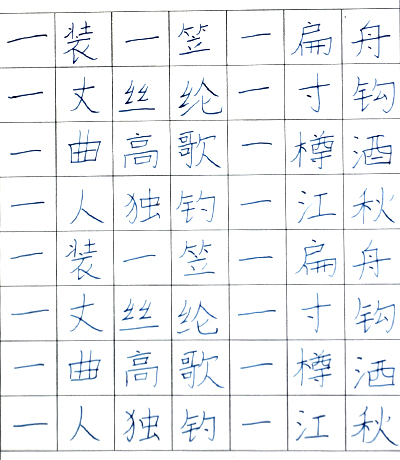 一装一笠一扁舟
一丈丝纶一寸钩
一曲高歌一樽酒
一人独钓一江秋
一装一笠一扁舟
一丈丝纶一寸钩
一曲高歌一樽酒
一人独钓一江秋